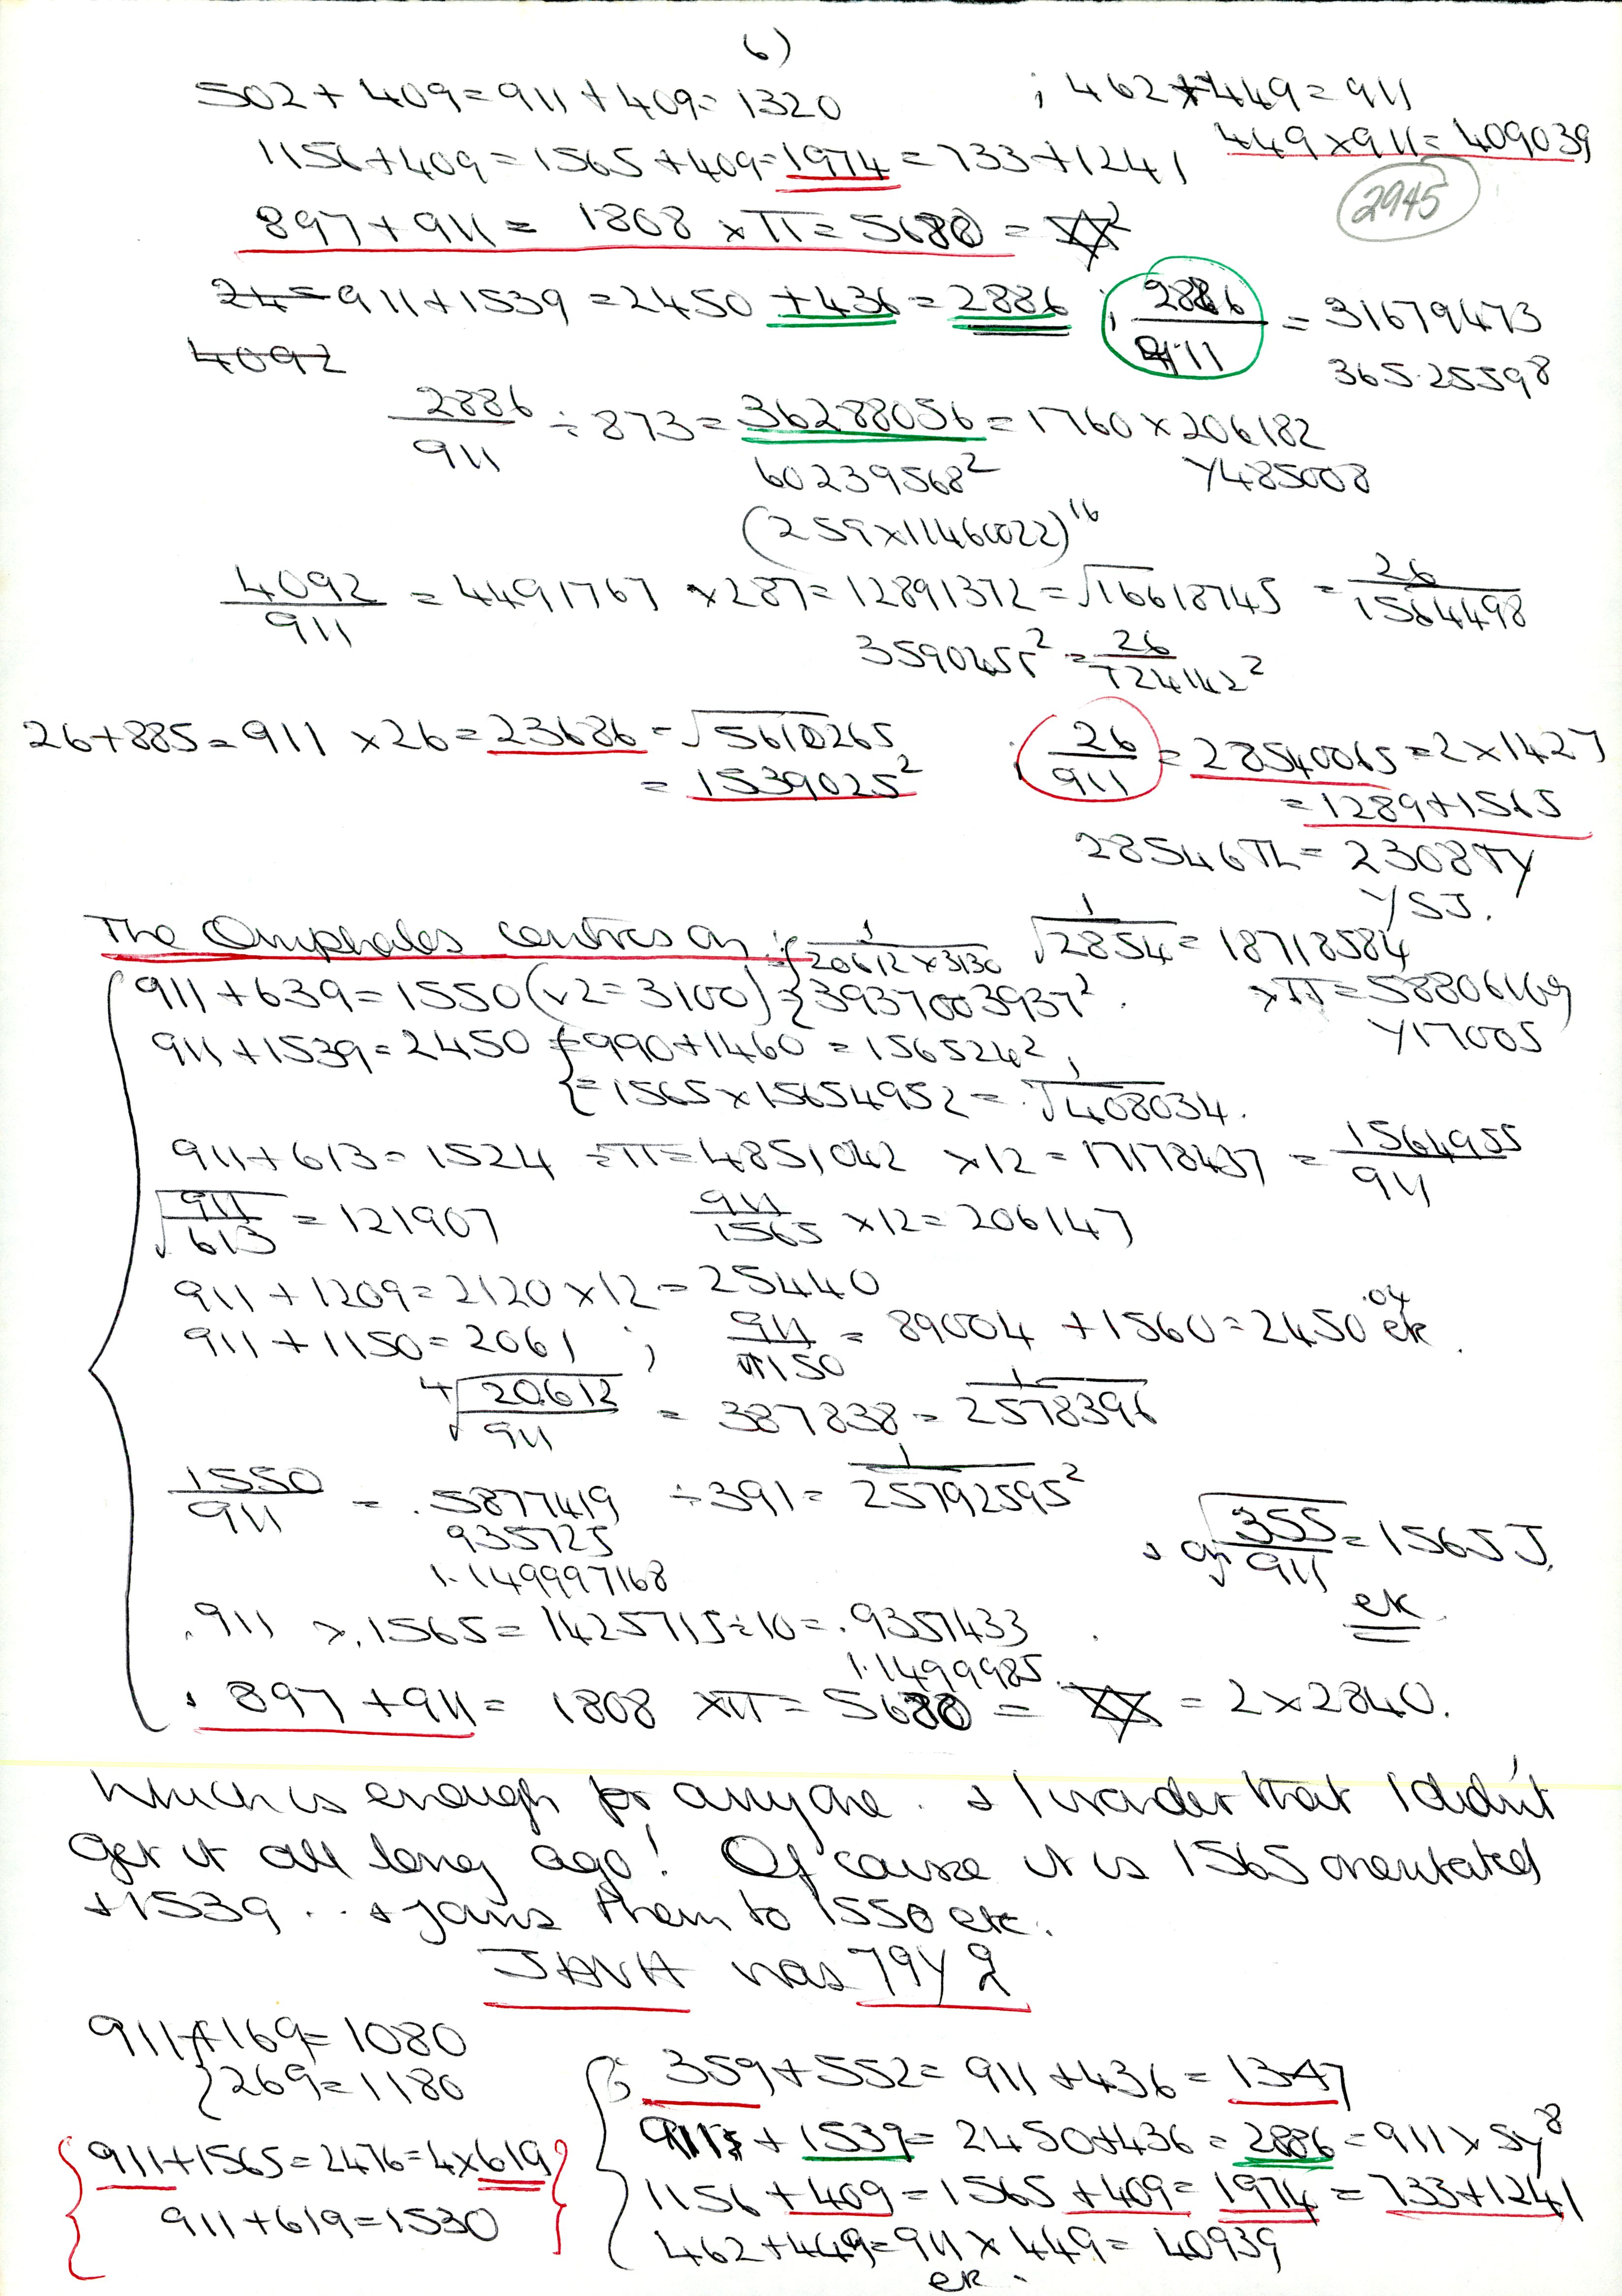 6)
502 + 409 = 911 + 409 = 1320 ; 462 + 449 = 911
1156 + 409 = 1565 + 409 = 1974 = 733 + 1241
449 x 911 = 409039
2945
897 + 911 = 1808 x π = 5680 =
24 = 911 + 1539 = 2450 + 436 = 2886 ; 2886/911 = 31679473
4092
365.25598
2886/911 ÷ 873 = 36288056 = 1760 x 206182
60239568² Y485008
(259 x 11460022)¹⁶
4092/911 = 4491767 x 287 = 12891372 = √16618745 = 26/1564498
3590455² = 26/724142²
26 + 885 = 911 x 26 = 23686 = √5610265
= 1539025²
26/911 = 28540065 = 2 x 1427
= 1289 + 1565
28546π = 2308πy
YSJ.
The Omphalos centres on :- 1/20612 x 3130
1/√2854 = 18718584
911 + 639 = 1550 (x 2 = 3100) 3937003937²
x π = 58806169
Y17005
911 + 1539 = 2450 = 990 + 1460 = 156524²
= 1565 x 15654952 = 1/√408034.
911 + 613 = 1524 ÷ π = 4851042 x 12 = 17178437 = 1564955/911
√911/613 = 121907 911/1565 x 12 = 206147
911 + 1209 = 2120 x 12 = 25440
911 + 1150 = 2061 ; 911/π150 = 89004 + 1560 = 2450.04 etc.
⁴√20612/911 = 387838 = 1/2578396
1550/911 = .5877419 ÷ 391 = 1/25792595²
935725
1.149997168
& on √355/911 = 1565 J.
etc
.911 x .1565 = 1425715 ÷ 10 = .9357433
1.1499985
. 897 + 911 = 1808 x π = 5680 = = 2 x 2840.
Which is enough for anyone. & I wonder that I didn't
get it all long ago! Of course it is 1565 orientated
+ 1539 .. & joins them to 1550 etc.
JAVA was 79Y 9/2
911 + 169 = 1080
269 = 1180
911 + 1565 = 2476 = 4 x 619
911 + 619 = 1530
359 + 552 = 911 + 436 = 1347
911 + 1539 = 2450 + 436 = 2886 = 911 x 5y⁸
1156 + 409 = 1565 + 409 = 1974 = 733 + 1241
462 + 449 = 911 x 449 = 40939
etc.